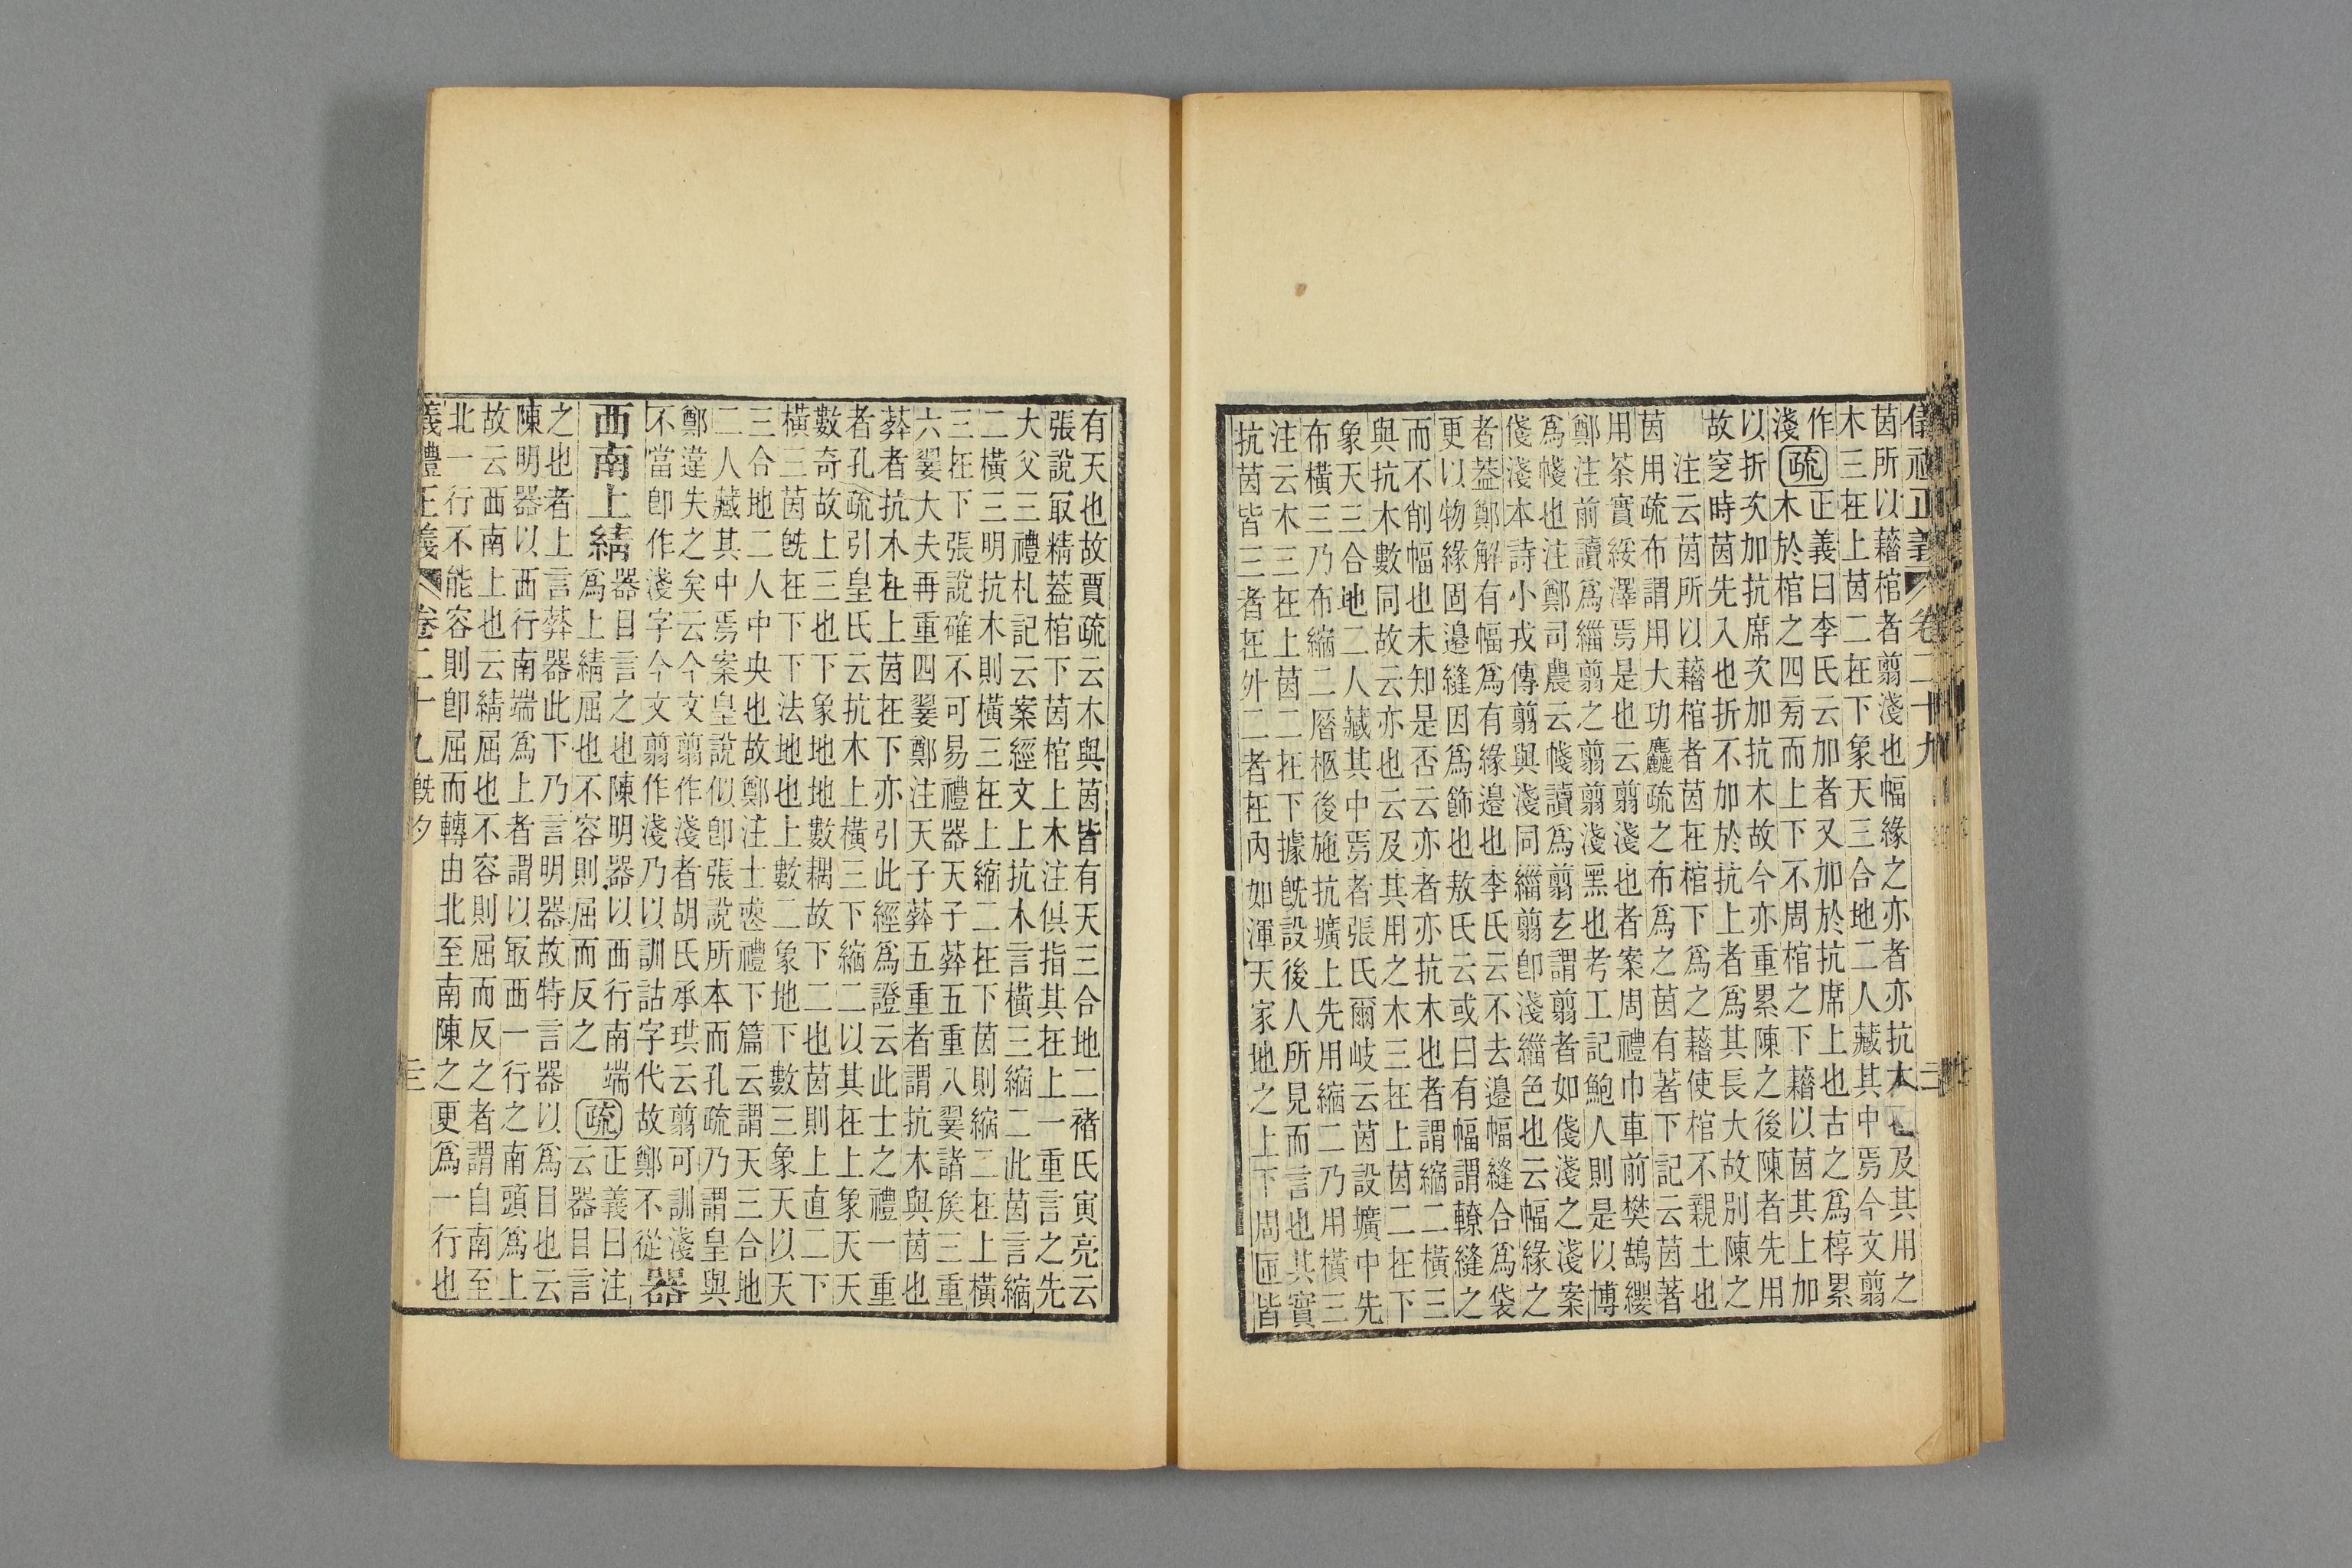 儀禮正義 卷二十九
茵所以藉棺者翦淺也幅緣之亦者亦抗木也及其用之
木三在上茵二在下象天三合地二人藏其中焉今文翦
作
淺
疏
正義曰李氏云加者又加於抗席上也古之爲椁累
木於棺之四旁而上下不周棺之下藉以茵其上加
以折次加抗席次加抗木故今亦重累陳之後陳者先用
故窆時茵先入也折不加於抗上者爲其長大故別陳之
注云茵所以藉棺者茵在棺下爲之藉使棺不親土也
茵用疏布謂用大功麤疏之布爲之茵有著下記云茵著
用荼實綏澤焉是也云翦淺也者案周禮巾車前樊鵠纓
鄭注前讀爲緇翦之翦翦淺黑也考工記鮑人則是以博
爲帴也注鄭司農云帴讀爲翦玄謂翦者如俴淺之淺案
俴淺本詩小戎傳翦與淺同緇翦卽淺緇色也云幅緣之
者蓋鄭解有幅爲有緣邊也李氏云不去邊幅縫合爲袋
更以物緣固邊縫因爲飾也敖氏云或曰有幅謂繚縫之
而不削幅也未知是否云亦者亦抗木也者謂縮二橫三
與抗木數同故云亦也云及其用之木三在上茵二在下
象天三合地二人藏其中焉者張氏爾岐云茵設壙中先
布橫三乃布縮二厝柩後施抗壙上先用縮二乃用橫三
注云木三在上茵二在下據旣設後人所見而言也其實
抗茵皆三者在外二者在內如渾天家地之上下周匝皆
有天也故賈疏云木與茵皆有天三合地二褚氏寅亮云
張說㝡精蓋棺下茵棺上木注俱指其在上一重言之先
大父三禮札記云案經文上抗木言橫三縮二此茵言縮
二橫三明抗木則橫三在上縮二在下茵則縮二在上橫
三在下張說確不可易禮器天子葬五重八翣諸侯三重
六翣大夫再重四翣鄭注天子葬五重者謂抗木與茵也
葬者抗木在上茵在下亦引此經爲證云此士之禮一重
者孔疏引皇氏云抗木上橫三下縮二以其在上象天天
數奇故上三也下象地地數耦故下二也茵則上直二下
橫三茵旣在下下法地也上數二象地下數三象天以天
三合地二人中央也故鄭注士喪禮下篇云謂天三合地
二人藏其中焉案皇說似卽張說所本而孔疏乃謂皇與
鄭違失之矣云今文翦作淺者胡氏承珙云翦可訓淺
不當卽作淺字今文翦作淺乃以訓詁字代故鄭不從
器
西南上綪
器目言之也陳明器以西行南端
爲上綪屈也不容則屈而反之
疏
正義曰注
云器目言
之也者上言葬器此下乃言明器故特言器以爲目也云
陳明器以西行南端爲上者謂以㝡西一行之南頭爲上
故云西南上也云綪屈也不容則屈而反之者謂自南至
北一行不能容則卽屈而轉由北至南陳之更爲一行也
義禮正義 卷二十九旣夕